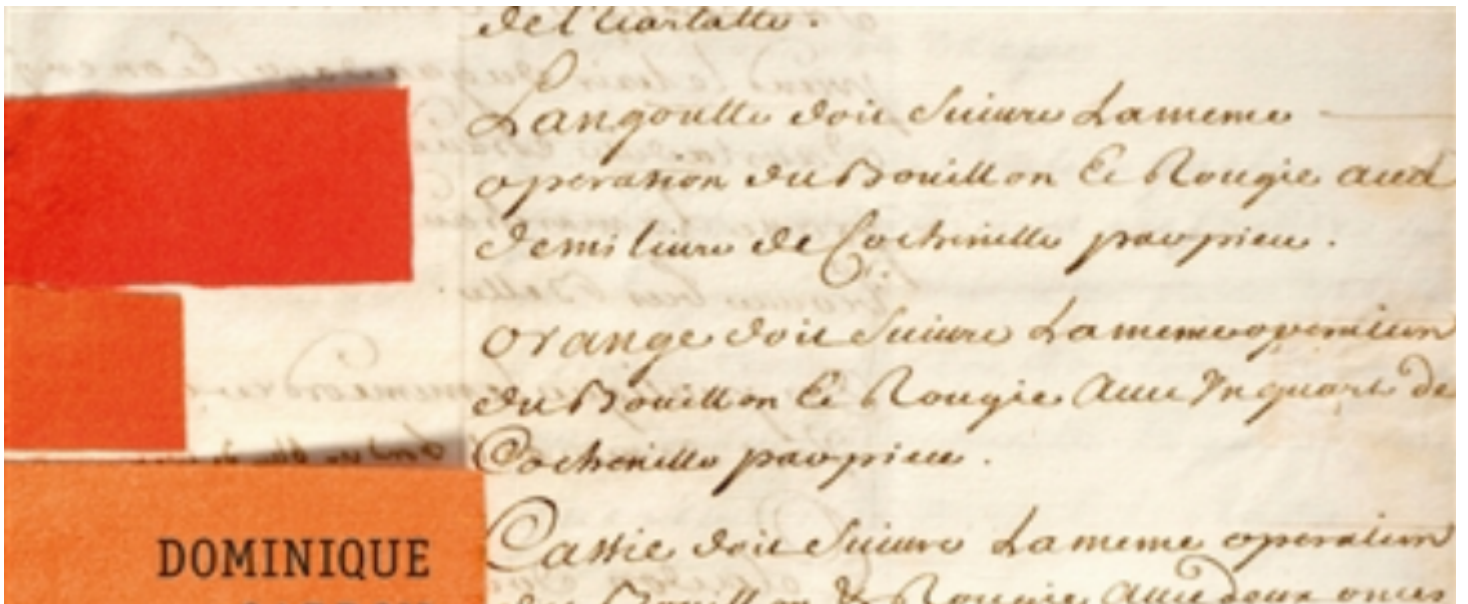 del'Ecarlatte.
Langoutte doit Suiure Lameme
operation du Bouillon Et Rougie aued
demi liure de Cochenille par piece.
orange doit Suiure Lamemeoperation
du Bouillon Et Rougie Auec Vn quart de
Cochenille par piece.
Cassie doit Suiure Lameme operation
du Bouillon & Rougie Auec deux onces
DOMINIQUE